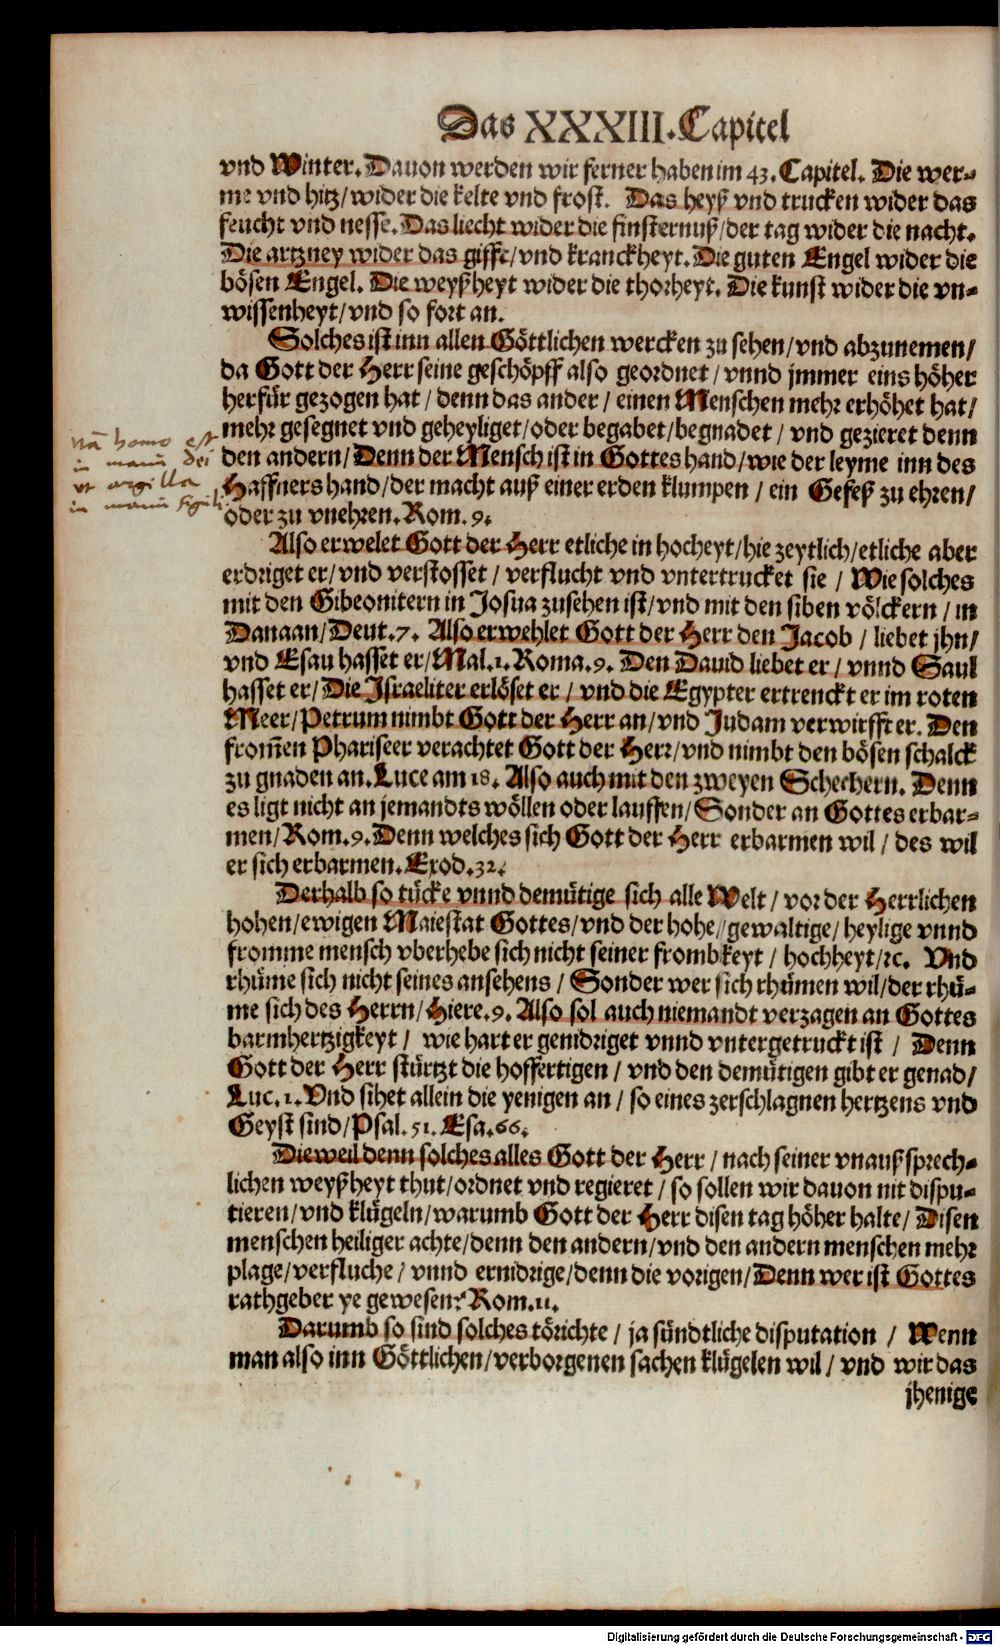 Das XXXIII. Capitel
vnd Winter. Dauon werden wir ferner haben im 43. Capitel. Die wer⸗
me vnd hitz/wider die kelte vnd frost. Das heyß vnd trucken wider das
feucht vnd nesse. Das liecht wider die finsternuß/der tag wider die nacht.
Die artzney wider das gifft/vnd kranckheyt. Die guten Engel wider die
bösen Engel. Die weyßheyt wider die thorheyt. Die kunst wider die vn⸗
wissenheyt/vnd so fort an.
Solches ist inn allen Göttlichen wercken zu sehen/vnd abzunemen/
da Gott der Herr seine geschöpff also geordnet/vnnd jmmer eins höher
herfür gezogen hat/denn das ander/einen Menschen mehr erhöhet hat/
mehr gesegnet vnd geheyliget/oder begabet/begnadet/vnd gezieret denn
den andern/Denn der Mensch ist in Gottes hand/wie der leyme inn des
Haffners hand/der macht auß einer erden klumpen/ein Gefeß zu ehren/
oder zu vnehren. Rom. 9.
nā homo est
in manu Dei
vt argilla
in manu figuli
Also erwelet Gott der Herr etliche in hocheyt/hie zeytlich/etliche aber
erdriget er/vnd verstosset/verflucht vnd vntertrucket sie/Wie solches
mit den Gibeonitern in Josua zusehen ist/vnd mit den siben völckern/in
Danaan/Deut. 7. Also erwehlet Gott der Herr den Jacob/liebet jhn/
vnd Esau hasset er/Mal. 1. Roma. 9. Den Dauid liebet er/vnnd Saul
hasset er/Die Israeliter erlöset er/vnd die Egypter ertrenckt er im roten
Meer/Petrum nimbt Gott der Herr an/vnd Judam verwirfft er. Den
from̄en Phariseer verachtet Gott der Herr/vnd nimbt den bösen schalck
zu gnaden an. Luce am 18. Also auch mit den zweyen Schechern. Denn
es ligt nicht an jemandts wöllen oder lauffen/Sonder an Gottes erbar⸗
men/Rom. 9. Denn welches sich Gott der Herr erbarmen wil/des wil
er sich erbarmen. Exod. 32.
Derhalb so tücke vnnd demütige sich alle Welt/vor der Herrlichen
hohen/ewigen Maiestat Gottes/vnd der hohe/gewaltige/heylige vnnd
fromme mensch vberhebe sich nicht seiner frombkeyt/hochheyt/ꝛc. Vnd
rhüme sich nicht seines ansehens/Sonder wer sich rhümen wil/der rhü⸗
me sich des Herrn/Hiere. 9. Also sol auch niemandt verzagen an Gottes
barmhertzigkeyt/wie hart er genidriget vnnd vntergetruckt ist/Denn
Gott der Herr stürtzt die hoffertigen/vnd den demütigen gibt er genad/
Luc. 1. Vnd sihet allein die yenigen an/so eines zerschlagnen hertzens vnd
Geyst sind/Psal. 51. Esa. 66.
Die weil denn solches alles Gott der Herr/nach seiner vnaußsprech⸗
lichen weyßheyt thut/ordnet vnd regieret/so sollen wir dauon nit dispu⸗
tieren/vnd klügeln/warumb Gott der Herr disen tag höher halte/Disen
menschen heiliger achte/denn den andern/vnd den andern menschen mehr
plage/verfluche/vnnd ernidrige/denn die vorigen/Denn wer ist Gottes
rathgeber ye gewesen? Rom. 11.
Darumb so sind solches törichte/ja sündtliche disputation/Wenn
man also inn Göttlichen/verborgenen sachen klügelen wil/vnd wir das
jhenige
Digitalisierung gefördert durch die Deutsche Forschungsgemeinschaft - DFG